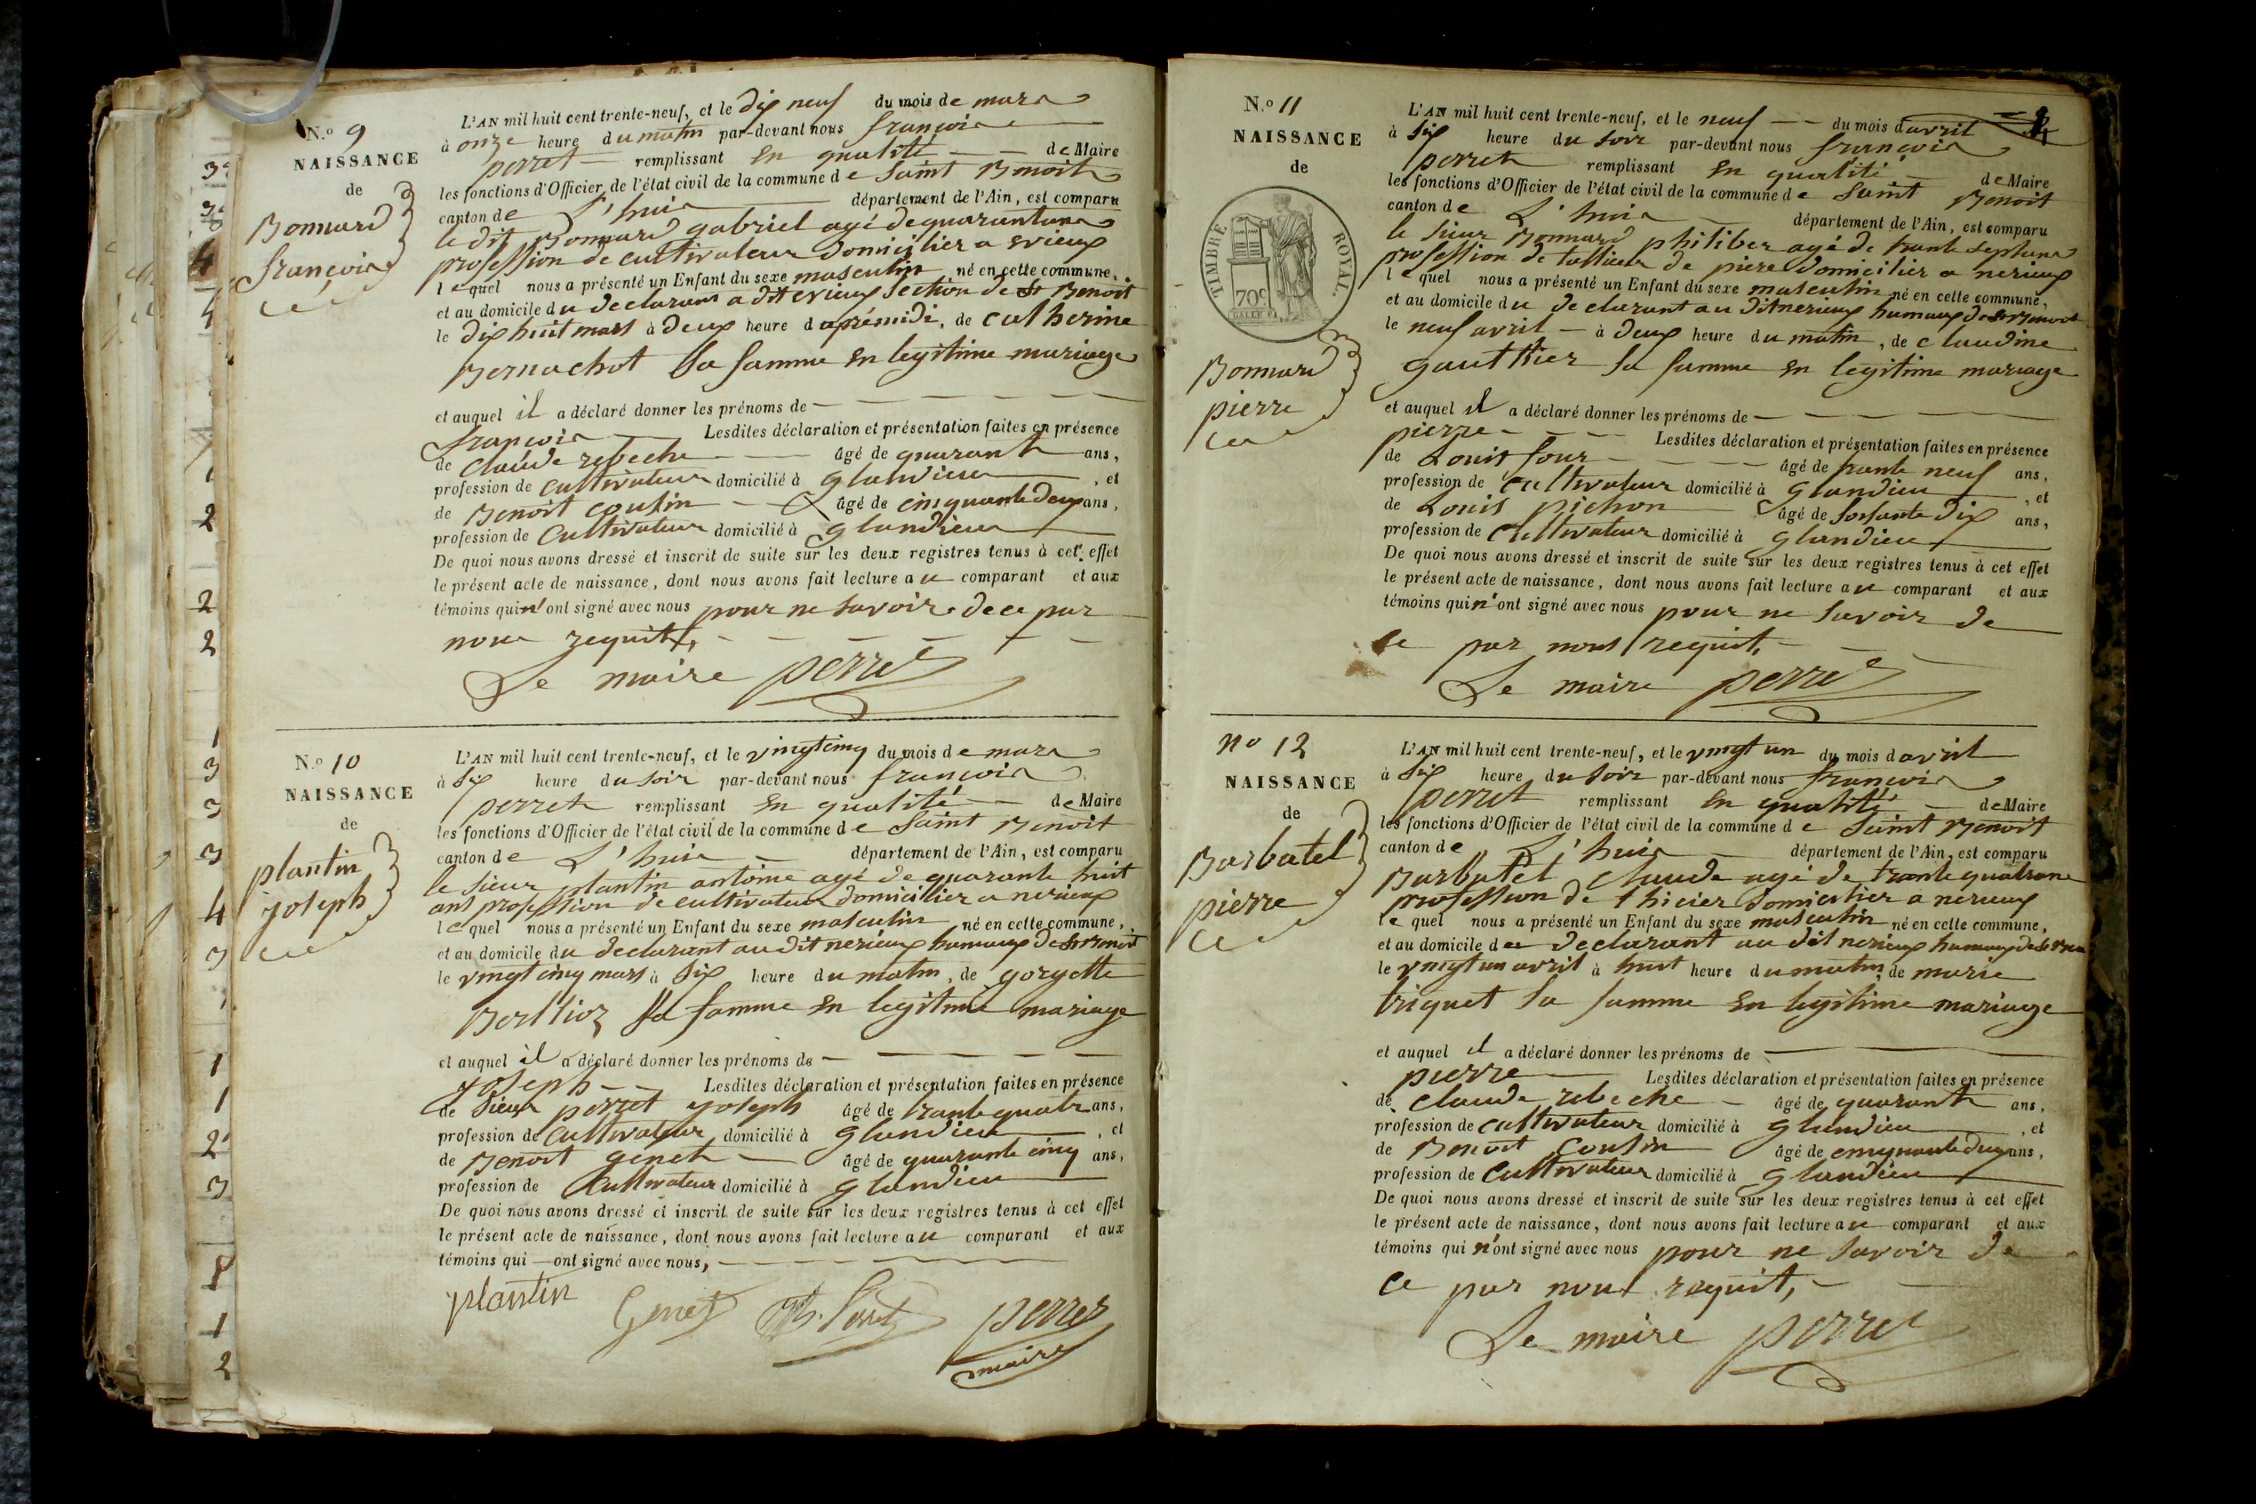 N.o 9
NAISSANCE
de
Bonnard
françois
L'AN mil huit cent trente-neuf, et le dix neuf du mois de mars
à onze heure du matin par-devant nous françois
perret remplissant en qualité de Maire
les fonctions d'Officier de l'état civil de la commune de Saint Benoit
canton de L'huis département de l'Ain, est comparu
le dit Bonnard gabriel agé de quarant ans
profession de cultivateur domicilier a evieux
lequel nous a présenté un Enfant du sexe masculin né en cette commune,
et au domicile du declarant a dit evieux section de St Benoit
le dix huit mars à deux heure d aprémidi, de catherine
Bernachot sa famme en legitime mariage
et auquel il a déclaré donner les prénoms de
françois Lesdites déclaration et présentation faites en présence
de Claude rebeche âgé de quarant ans,
profession de cultivateur domicilié à glandieu, et
de Benoit cousin âgé de cinquante deux ans,
profession de Cultivateur domicilié à glandieu
De quoi nous avons dressé et inscrit de suite sur les deux registres tenus à cet effet
le présent acte de naissance, dont nous avons fait lecture au comparant et aux
témoins qui n'ont signé avec nous pour ne savoir de ce par
nous requit,
Le maire perret
N.o 10
NAISSANCE
de
plantin
joseph
L'AN mil huit cent trente-neuf, et le vingt cinq du mois de mars
à six heure du soir par-devant nous françois
perret remplissant en qualité de Maire
les fonctions d'Officier de l'état civil de la commune de Saint Benoit
canton de L'huis département de l'Ain, est comparu
le sieur plantin antoine agé de quarante huit
ans profession de cultivateur domicilier a nerieux
lequel nous a présenté un Enfant du sexe masculin né en cette commune,
et au domicile du declarant au dit nerieux hamaux de St Benoit
le vingt cinq mars à six heure du matin, de goryette
Berllioz sa famme en legitime mariage
et auquel il a déclaré donner les prénoms de
joseph Lesdites déclaration et présentation faites en présence
de Sieur perret joseph âgé de trante quatr ans,
profession de Cultivateur domicilié à glandieu, et
de Benoit genet âgé de quarante cinq ans,
profession de Cultivateur domicilié à glandieu
De quoi nous avons dressé et inscrit de suite sur les deux registres tenus à cet effet
le présent acte de naissance, dont nous avons fait lecture au comparant et aux
témoins qui ont signé avec nous,
plantin Genet Perret perret
maire
N.o 11
NAISSANCE
de
TIMBRE ROYAL.
70c
Bonnard
pierre
L'AN mil huit cent trente-neuf, et le neuf du mois d avril
à six heure du soir par-devant nous françois
perret remplissant en qualité de Maire
les fonctions d'Officier de l'état civil de la commune de Saint Benoit
canton de L'huis département de l'Ain, est comparu
le sieur Bonnard philiber agé de trante sept ans
profession de tallieur de piere domicilier a nerieux
lequel nous a présenté un Enfant du sexe masculin né en cette commune,
et au domicile du declarant au dit nerieux hamaux de St Benoit
le neuf avril à deux heure du matin, de claudine
gauthier sa famme en legitime mariage
et auquel il a déclaré donner les prénoms de
pierre Lesdites déclaration et présentation faites en présence
de Louis four âgé de trante neuf ans,
profession de cultivateur domicilié à glandieu, et
de Louis pichon âgé de soisante dix ans,
profession de Cultivateur domicilié à glandieu
De quoi nous avons dressé et inscrit de suite sur les deux registres tenus à cet effet
le présent acte de naissance, dont nous avons fait lecture au comparant et aux
témoins qui n'ont signé avec nous pour ne savoir de
ce par nous requit,
Le maire perret
no 12
NAISSANCE
de
Barbatel
pierre
L'AN mil huit cent trente-neuf, et le vingt un du mois d avril
à six heure du soir par-devant nous françois
perret remplissant en qualité de Maire
les fonctions d'Officier de l'état civil de la commune de Saint Benoit
canton de L'huis département de l'Ain, est comparu
Barbatel Claude agé de trante quatr ans
profession de thicier domicilier a nerieux
lequel nous a présenté un Enfant du sexe masculin né en cette commune,
et au domicile du declarant au dit nerieux hamaux de St Ben
le vingt un avril à huit heure du matin, de marie
briquet sa famme en legitime mariage
et auquel il a déclaré donner les prénoms de
pierre Lesdites déclaration et présentation faites en présence
de Claude rebeche âgé de quarant ans,
profession de cultivateur domicilié à glandieu, et
de Benoit Cousin âgé de cinquante deux ans,
profession de Cultivateur domicilié à glandieu
De quoi nous avons dressé et inscrit de suite sur les deux registres tenus à cet effet
le présent acte de naissance, dont nous avons fait lecture au comparant et aux
témoins qui n'ont signé avec nous pour ne savoir de
ce par nous requit,
Le maire perret